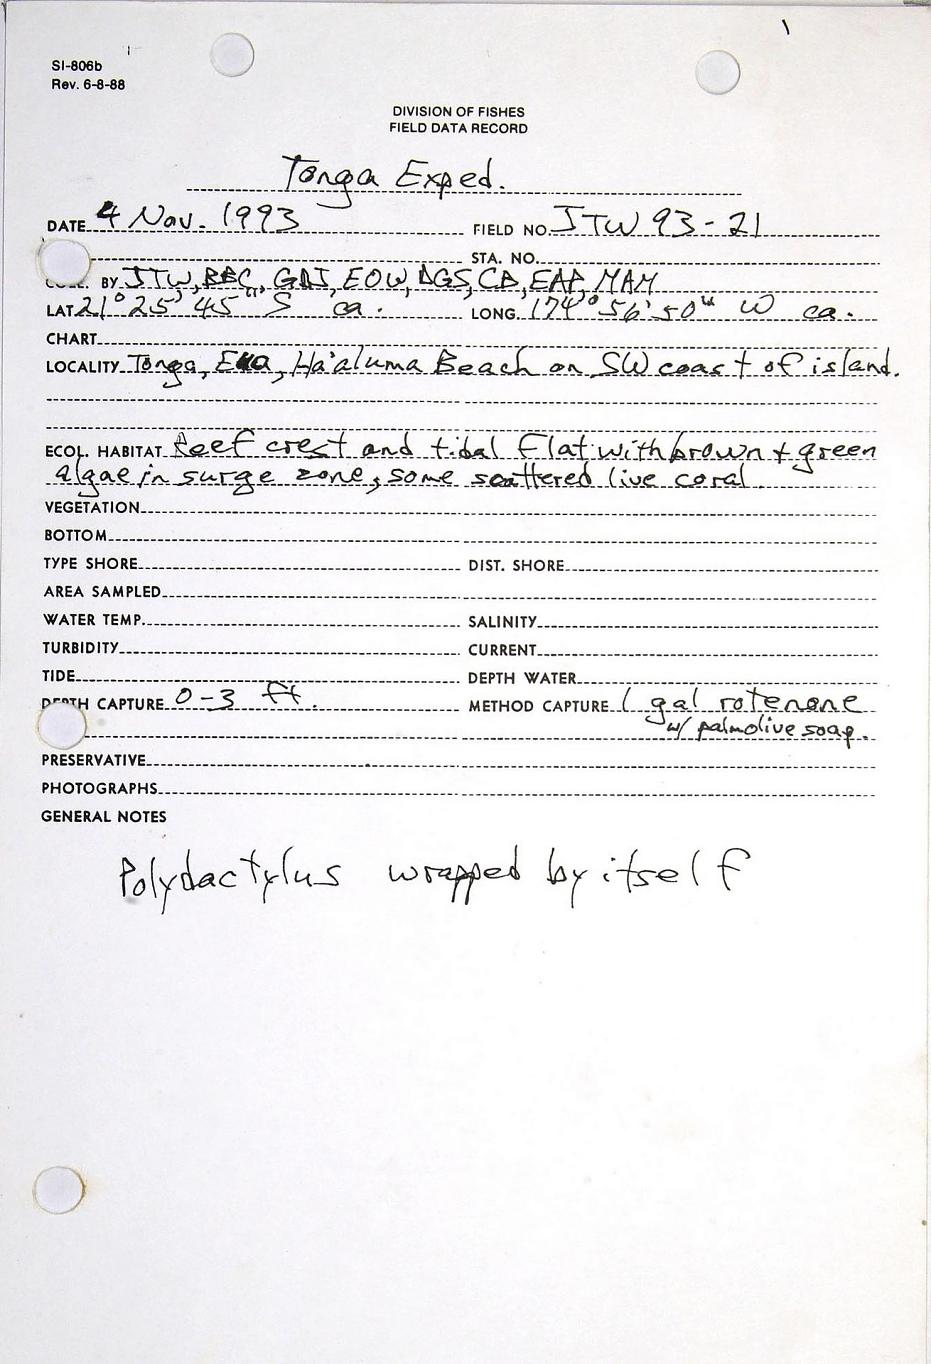 SI-806b
Rev. 6-8-88
DIVISION OF FISHES
FIELD DATA RECORD
Tonga Exped.
DATE 4 Nov. 1993 FIELD NO. JTW 93-21
STA. NO.
BY JTW, BBC, GDJ, EOW, DGS, CB, EAP, MAM
LAT 21° 25' 45" S ca. LONG. 174° 56' 50" W ca.
CHART
LOCALITY Tonga, Eua, Ha'aluma Beach on SW coast of island.
ECOL. HABITAT Reef crest and tidal flat with brown + green
algae in surge zone, some scattered live coral.
VEGETATION
BOTTOM
TYPE SHORE DIST. SHORE
AREA SAMPLED
WATER TEMP. SALINITY
TURBIDITY CURRENT
TIDE DEPTH WATER
DEPTH CAPTURE 0-3 ft. METHOD CAPTURE 1 gal rotenone
w/ palmolive soap.
PRESERVATIVE
PHOTOGRAPHS
GENERAL NOTES
Polydactylus wrapped by itself